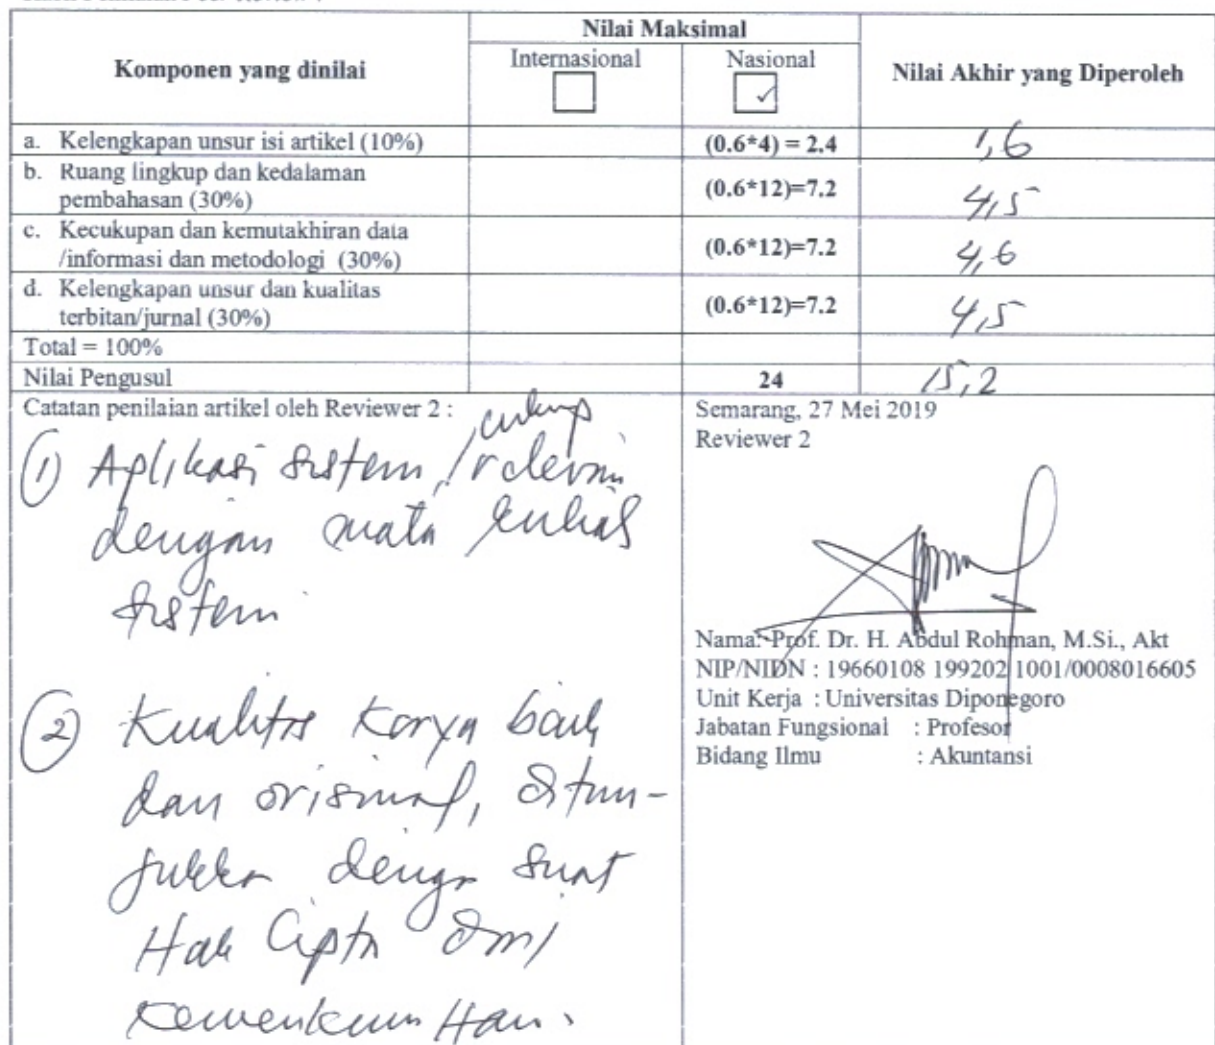 Nilai Maksimal
Komponen yang dinilai
Internasional
Nasional
Nilai Akhir yang Diperoleh
✓
a. Kelengkapan unsur isi artikel (10%) (0.6*4) = 2.4 1,6
b. Ruang lingkup dan kedalaman
pembahasan (30%) (0.6*12)=7.2 4,5
c. Kecukupan dan kemutakhiran data
/informasi dan metodologi (30%) (0.6*12)=7.2 4,6
d. Kelengkapan unsur dan kualitas
terbitan/jurnal (30%) (0.6*12)=7.2 4,5
Total = 100%
Nilai Pengusul 24 15,2
Catatan penilaian artikel oleh Reviewer 2 :
cukup
1 Aplikasi sistem relevan
dengan mata kuliah
sistem
2 Kualitas Karya baik
dan orisinal, ditun-
jukkan dengan surat
Hak Cipta dari
Kemenkum Ham.
Semarang, 27 Mei 2019
Reviewer 2
Nama: Prof. Dr. H. Abdul Rohman, M.Si., Akt
NIP/NIDN : 19660108 199202 1001/0008016605
Unit Kerja : Universitas Diponegoro
Jabatan Fungsional : Profesor
Bidang Ilmu : Akuntansi